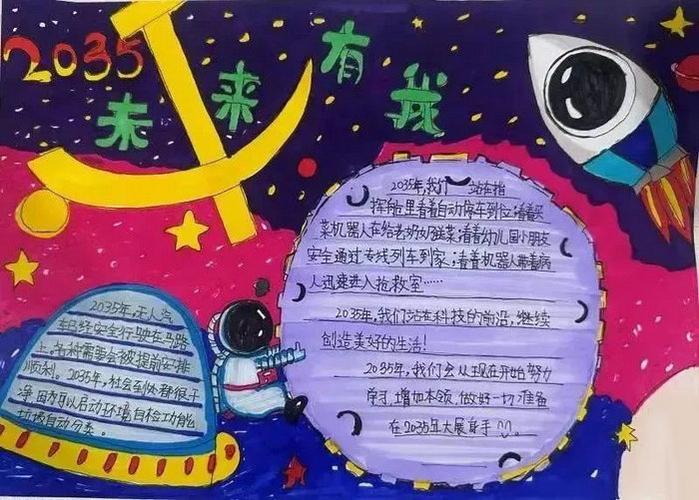 2035
未来有我
2035年,我们站在指
挥舱里看着自动停车到位;看着买
菜机器人在给老奶奶送菜;看着幼儿园小朋友
安全通过专线列车到家;看着机器人带着病
人迅速进入抢救室……
2035年,我们站在科技的前沿,继续
创造美好的生活!
2035年,我们会从现在开始努力
学习,增加本领,做好一切准备
在2035年大展身手
2035年,无人汽
车已经安全行驶在马路
上,各种需要会被提前安排
顺利。2035年,社会到处都很干
净,因为可以启动环境自检功能,
垃圾自动分类。